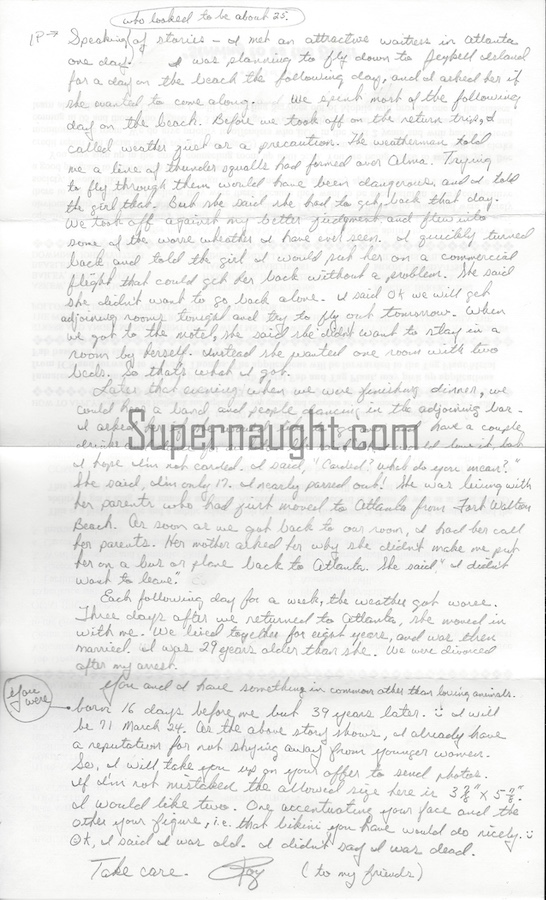 who looked to be about 25.
1P→ Speaking of stories – I met an attractive waitress in Atlanta
one day. I was planning to fly down to Jeykell Island
for a day on the beach the following day, and I asked her if
she wanted to come along. We spent most of the following
day on the beach. Before we took off on the return trip, I
called weather just as a precaution. The weatherman told
me a line of thunder squalls had formed over Alma. Trying
to fly through them would have been dangerous, and I told
the girl that. But she said she had to get back that day.
We took off against my better judgment and flew into
some of the worse wheather I have ever seen. I quickly turned
back and told the girl I would put her on a commercial
flight that could get her back without a problem. She said
she didn't want to go back alone. I said OK we will get
adjoining rooms tonight and try to fly out tomorrow. When
we got to the motel, she said she didn't want to stay in a
room by herself. Instead she wanted one room with two
beds. So that's what I got.
Later that evening when we were finishing dinner, we
could hear a band and people dancing in the adjoining bar.
I asked have a couple
drinks love it, but
I hope I'm not carded. I said, "Carded? What do you mean?"
She said, I'm only 17. I nearly passed out! She was living with
her parents who had just moved to Atlanta from Fort Walton
Beach. As soon as we got back to our room, I had her call
her parents. Her mother asked her why she didn't make me put
her on a bus or plane back to Atlanta. She said, "I didn't
want to leave."
Each following day for a week, the weather got worse.
Three days after we returned to Atlanta, she moved in
with me. We lived together for eight years, and was then
married. I was 29 years older than she. We were divorced
after my arrest.
You and I have something in common other than loving animals.
You were
born 16 days before me but 39 years later. I will
be 71 March 24. As the above story shows, I already have
a reputation for not shying away from younger women.
So, I will take you up on your offer to send photos.
If I'm not mistaked the allowed size here is 3 " x 5 ".
I would like two. One accentuating your face and the
other your figure, i.e. that bikini you have would do nicely.
OK, I said I was old. I didn't say I was dead.
Take care. Ray (to my friends)
Supernaught.com